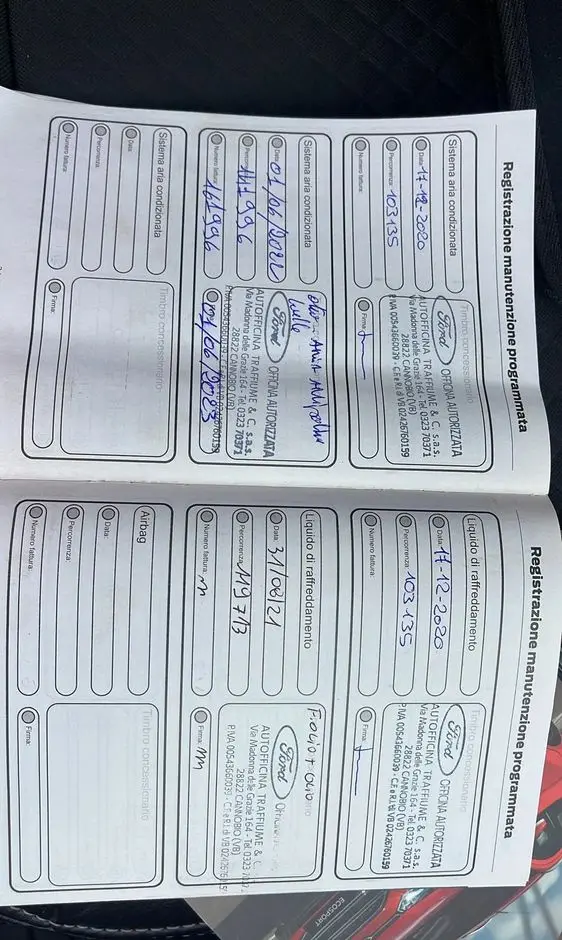 Registrazione manutenzione programmata
Sistema aria condizionata
Data: 17-12-2020
Percorrenza: 103135
Numero fattura:
Timbro concessionario
Ford OFFICINA AUTORIZZATA
AUTOFFICINA TRAFFIUME & C. s.a.s.
Via Madonna delle Grazie 164 - Tel. 0323 70371
28822 CANNOBIO (VB)
P.IVA 00543660039 - C.F. e R.I. di VB 02426760159
Firma:
Sistema aria condizionata
Data: 01/06/2022
Percorrenza:
Numero fattura: 161996
olio
Ford OFFICINA AUTORIZZATA
AUTOFFICINA TRAFFIUME & C. s.a.s.
Via Madonna delle Grazie 164 - Tel. 0323 70371
28822 CANNOBIO (VB)
01/06/2023
Sistema aria condizionata
Data:
Percorrenza:
Numero fattura:
Timbro concessionario
Firma:
Registrazione manutenzione programmata
Liquido di raffreddamento
Data: 17-12-2020
Percorrenza: 103135
Numero fattura:
Timbro concessionario
Ford OFFICINA AUTORIZZATA
AUTOFFICINA TRAFFIUME & C. s.a.s.
Via Madonna delle Grazie 164 - Tel. 0323 70371
28822 CANNOBIO (VB)
P.IVA 00543660039 - C.F. e R.I. di VB 02426760159
Firma:
Liquido di raffreddamento
Data: 31/08/21
Percorrenza: 119713
Numero fattura:
F.olio + olio
Ford
AUTOFFICINA TRAFFIUME & C.
Via Madonna delle Grazie 164 - Tel. 0323
28822 CANNOBIO (VB)
P.IVA 00543660039 - C.F. e R.I. di VB
Firma:
Airbag
Data:
Percorrenza:
Numero fattura:
Timbro concessionario
Firma:
ECOSPORT